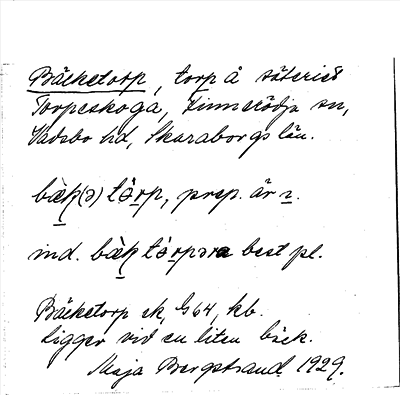 Bäcketorp, torp å säteriet
Torpaskoga, Finnerödja sn,
Vadsbo hd, Skaraborgs län.
bæk(ə) tɵ̀rp, prep. är ɪ.
ind. bæ̀k tɵ̀rpəra best pl.
Bäcketorp ek, 64, kb.
Ligger vid en liten bäck.
Maja Bergstrand 1929.